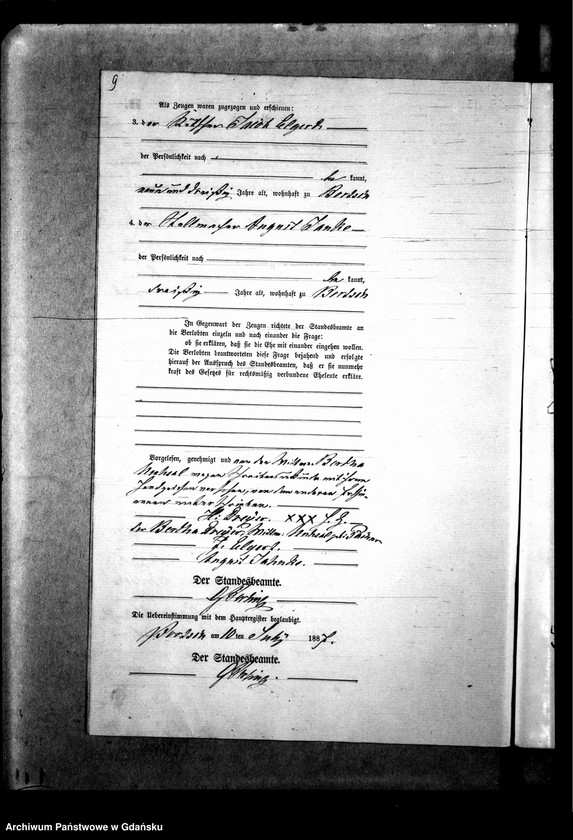 9
Als Zeugen waren zugezogen und erschienen:
3. der Jacob Elgert
der Persönlichkeit nach
be kannt,
neun und dreißig Jahre alt, wohnhaft zu
4. der Stellmacher August Jahnke
der Persönlichkeit nach
be kannt,
dreißig Jahre alt, wohnhaft zu
In Gegenwart der Zeugen richtete der Standesbeamte an
die Verlobten einzeln und nach einander die Frage:
ob sie erklären, daß sie die Ehe mit einander eingehen wollen.
Die Verlobten beantworteten diese Frage bejahend und erfolgte
hierauf der Ausspruch des Standesbeamten, daß er sie nunmehr
kraft des Gesetzes für rechtsmäßig verbundene Eheleute erkläre.
Vorgelesen, genehmigt und von der Bertha
wegen mit ihrem
Handzeichen versehen, von den anderen
unterschrieben.
H: Dreÿer. XXX
der Bertha Dreÿer,
J. Elgert.
August Jahnke.
Der Standesbeamte.
Die Uebereinstimmung mit dem Hauptregister beglaubigt.
am 10 ten July 1887.
Der Standesbeamte.
Archiwum Państwowe w Gdańsku